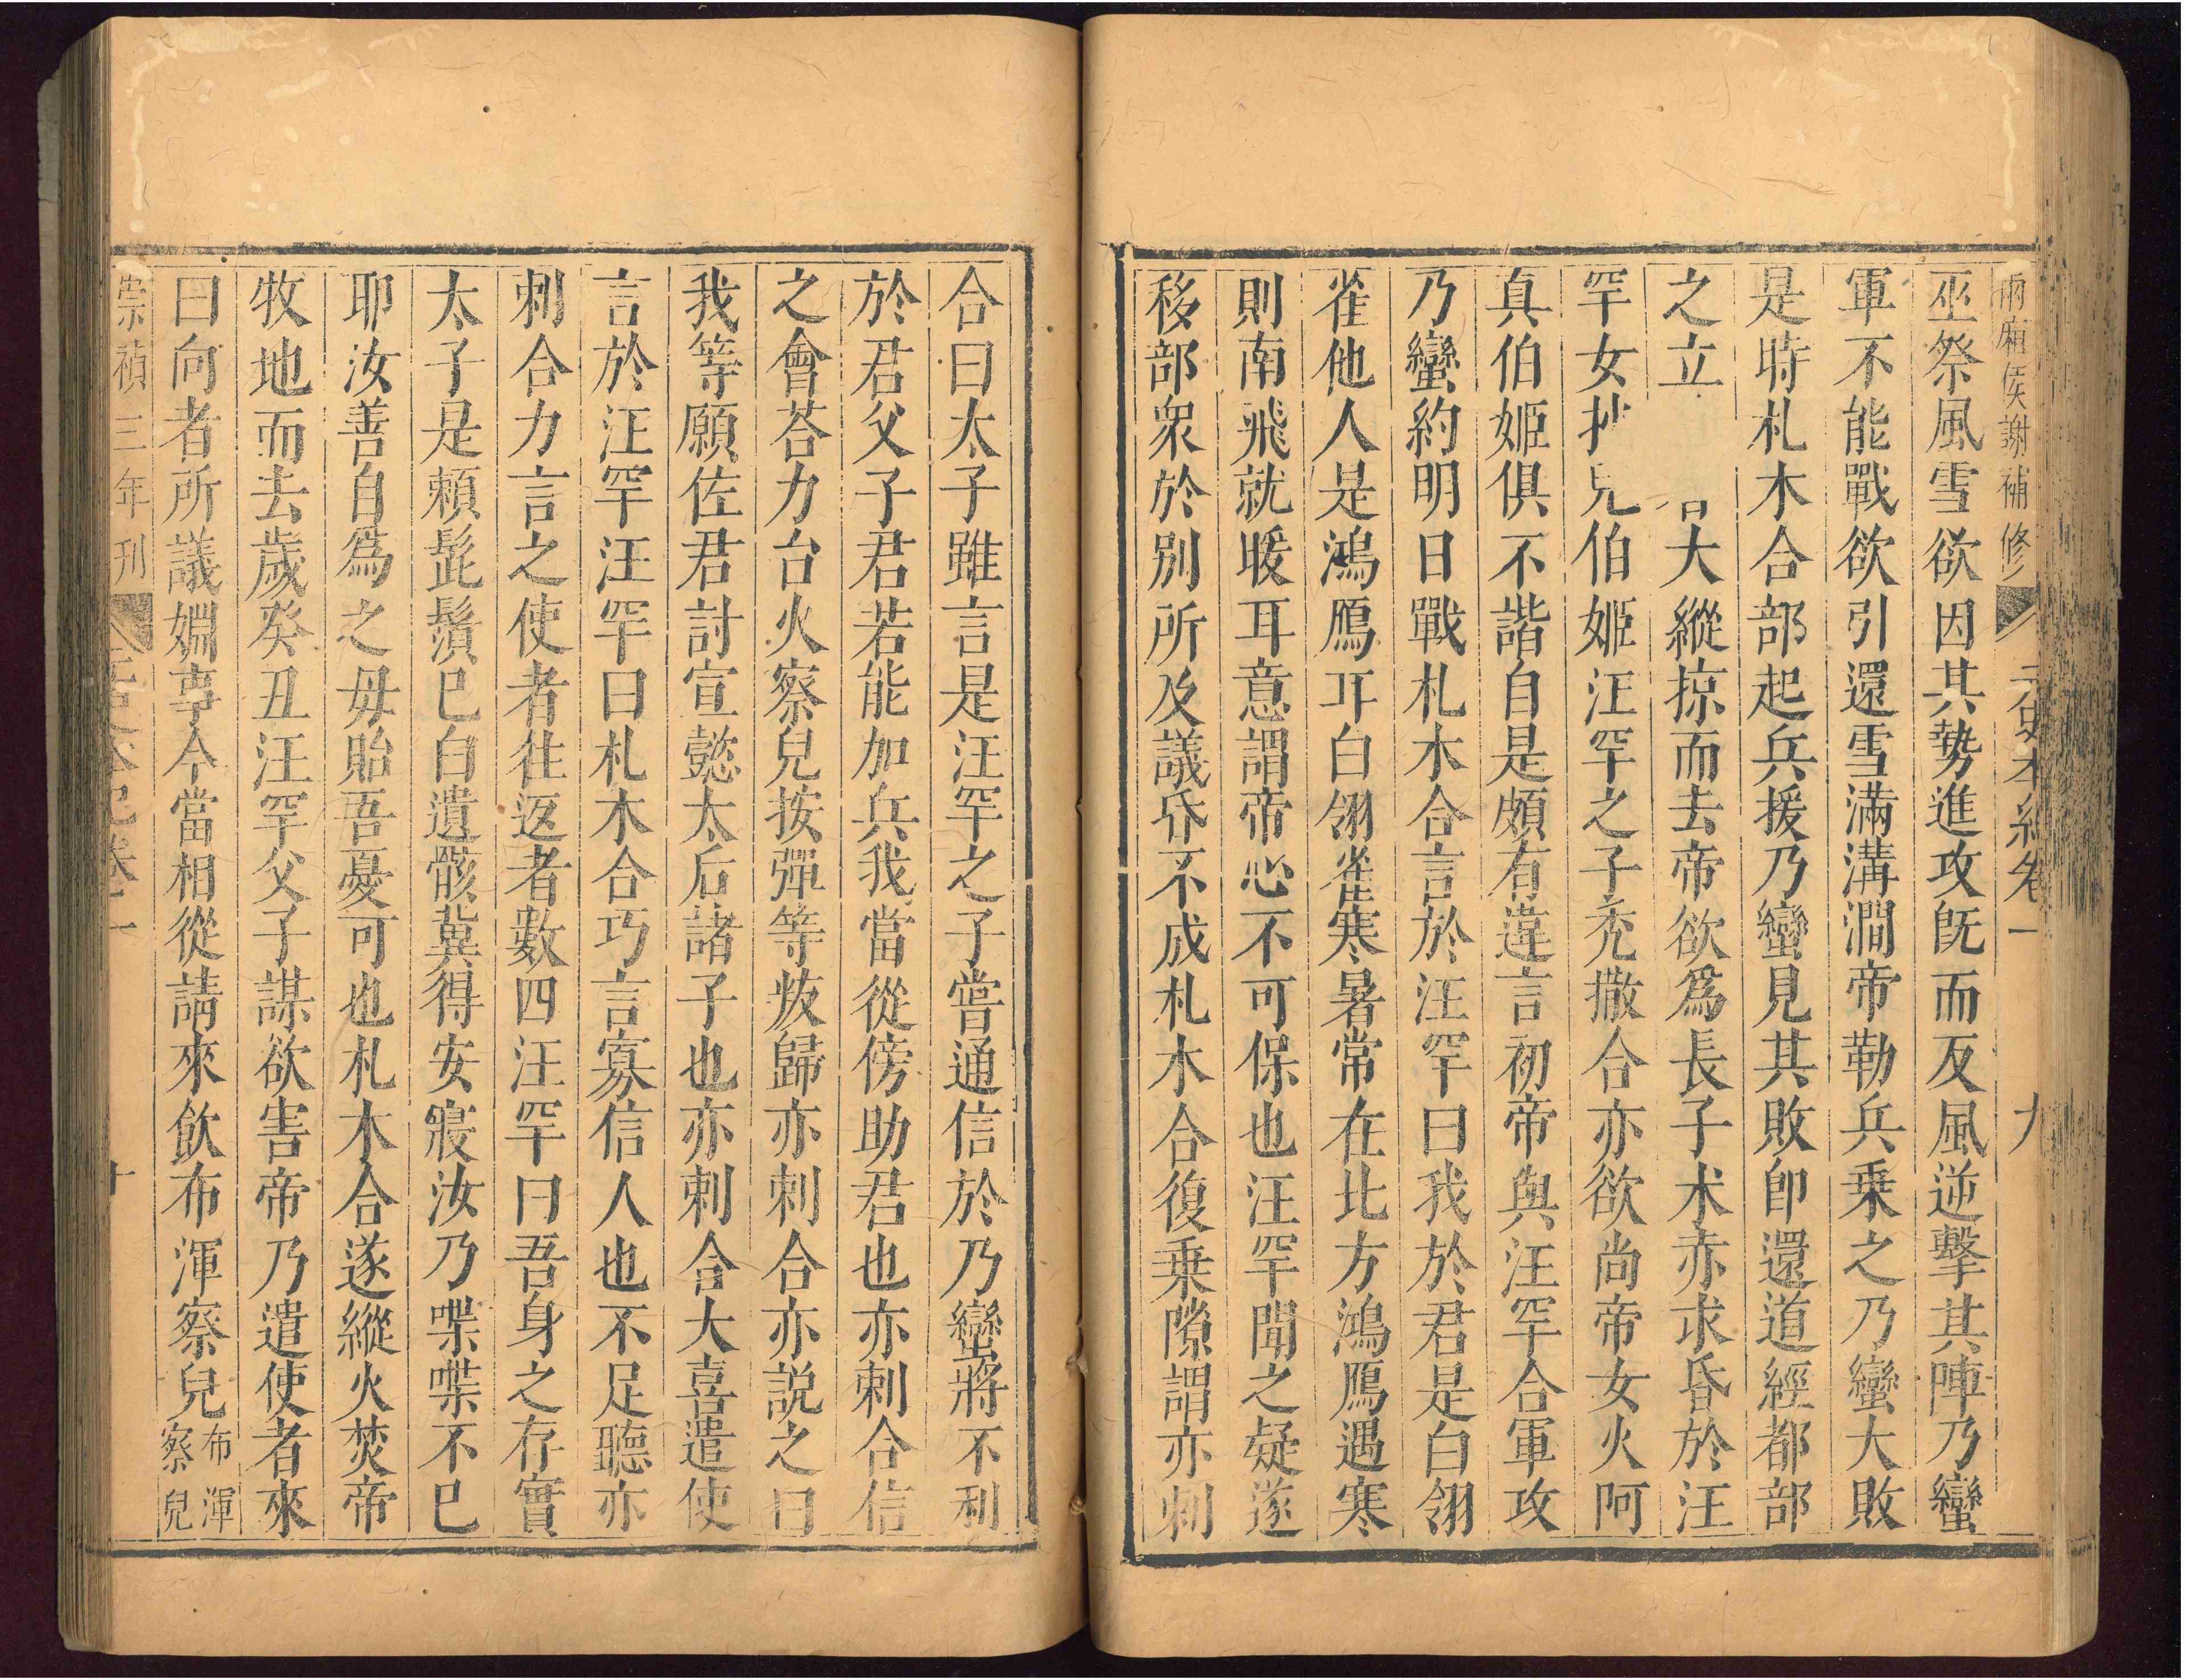 兩廂侯謝補修 元史本紀卷一 九
巫祭風雪欲因其勢進攻既而反風逆擊其陣乃蠻
軍不能戰欲引還雪滿溝澗帝勒兵乗之乃蠻大敗
是時札木合部起兵援乃蠻見其敗即還道經都部
之立 大縱掠而去帝欲爲長子术赤求昏於汪
罕女抄兒伯姬汪罕之子禿撒合亦欲尚帝女火阿
真伯姬俱不諧自是頗有違言初帝與汪罕合軍攻
乃蠻約明日戰札木合言於汪罕曰我於君是白翎
雀他人是鴻鴈耳白翎雀寒暑常在北方鴻鴈遇寒
則南飛就暖耳意謂帝心不可保也汪罕聞之疑遂
移部衆於別所及議昏不成札木合復乗隙謂亦剌
合曰太子雖言是汪罕之子嘗通信於乃蠻將不利
於君父子君若能加兵我當從傍助君也亦剌合信
之會荅力台火察兒按彈等叛歸亦剌合亦說之曰
我等願佐君討宣懿太后諸子也亦剌合大喜遣使
言於汪罕汪罕曰札木合巧言寡信人也不足聽亦
剌合力言之使者往返者數四汪罕曰吾身之存實
太子是賴髭鬚已白遺骸冀得安寢汝乃喋喋不已
耶汝善自爲之毋貽吾憂可也札木合遂縱火焚帝
牧地而去歲癸丑汪罕父子謀欲害帝乃遣使者來
曰向者所議婣事今當相從請來飲布渾察兒布渾
察兒
崇禎三年刊 元史本紀卷一 十